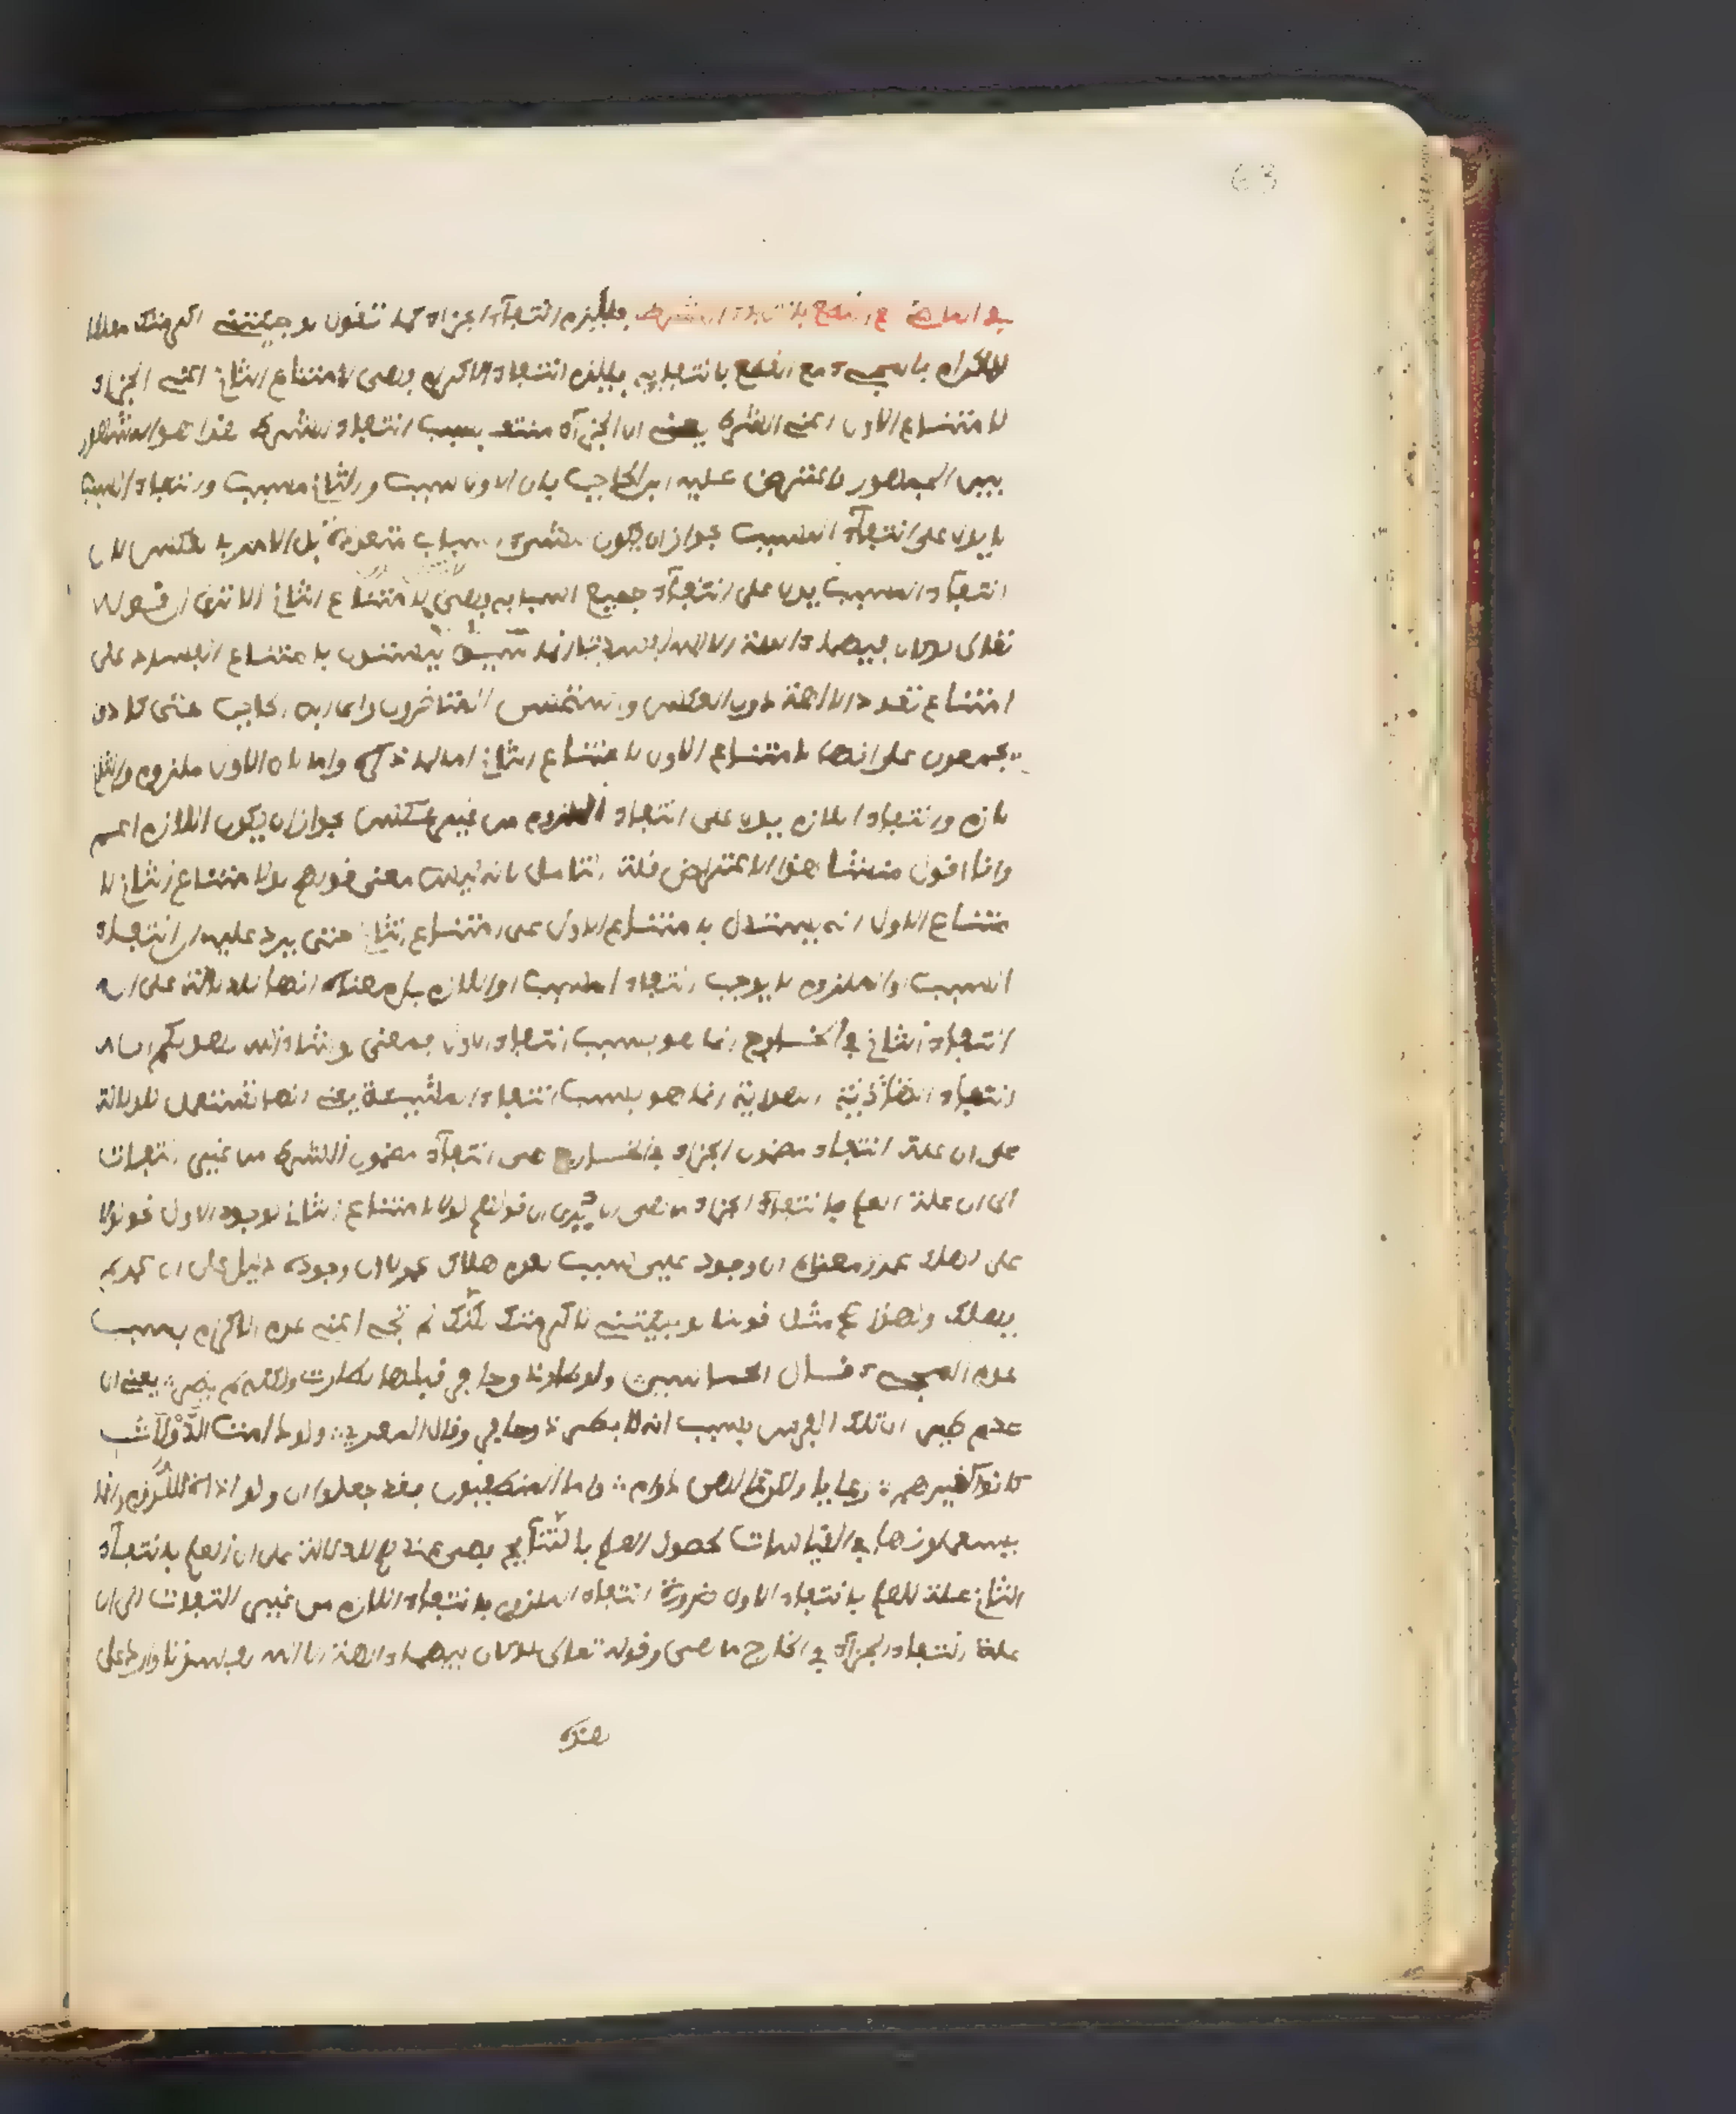 63
في الماضي مع القطع بانتفاء الشرط فيلزم انتفاء الجزاء كما تقول لو جئتني اكرمتك معلقا
للاكرام بالمجيء مع القطع بانتفايه فيلزم انتفاء الاكرام فهي لامتناع الثاني اعني الجزاء
لامتناع الاول اعني الشرط يعني ان الجزاء منتف بسبب انتفاء الشرط هذا هو المشهور
بين الجمهور واعترض عليه ابن الحاجب بان الاول سبب والثاني مسبب وانتفاء السبب
لا يدل على انتفاء المسبب لجواز ان يكون للشيء اسباب متعددة بل الامر بالعكس لان
انتفاء المسبب يدل على انتفاء جميع اسبابه فهي لامتناع الثاني الا ترى ان قوله
تعالى لو كان فيهما ءالهة الا الله لفسدتا انما سيق ليستدل بامتناع الفساد على
امتناع تعدد الالهة دون العكس واستحسن المتاخرون راي ابن الحاجب حتى كادوا
يجمعون على انها لامتناع الاول لامتناع الثاني اما لما ذكره واما لان الاول ملزوم والثاني
لازم وانتفاء اللازم يدل على انتفاء الملزوم من غير عكس لجواز ان يكون اللازم اعم
وانا اقول منشا هذا الاعتراض قلة التامل لانه ليس معنى قولهم لو لامتناع الثاني لا
متناع الاول انه يستدل بامتناع الاول على امتناع الثاني حتى يرد عليه ان انتفاء
السبب او الملزوم لا يوجب انتفاء المسبب او اللازم بل معناه انها للدلالة على ان
انتفاء الثاني في الخارج انما هو بسبب انتفاء الاول فمعنى لو شاء الله لهديكم ان
انتفاء الهداية انما هو بسبب انتفاء المشيئة يعني انها تستعمل للدلالة
على ان علة انتفاء مضمون الجزاء في الخارج هي انتفاء مضمون الشرط من غير التفات
الى ان علة العلم بانتفاء الجزاء ما هي الا ترى ان قولهم لولا لامتناع الثاني لوجود الاول نحو لولا
علي لهلك عمر معناه ان وجود علي سبب لعدم هلاك عمر لا ان وجوده دليل على ان عمر لم
يهلك ولهذا صح مثل قولنا لو جيتني لاكرمتك لكنك لم تجئ اعني عدم الاكرام بسبب
عدم المجيء قال الحماسي ولو طار ذو حافر قبلها لطارت ولكنه لم يطر يعني ان
عدم طير ان تلك الفرس بسبب انه لا يطير ذو حافر وقال المعري ولو دامت الدولات
كانوا كغيرهم رعايا ولكن ما لهن دوام واما المنطقيون فقد جعلوا ان ولو اداة اللزوم وانما
يستعملونها في القياسات لحصول العلم بالنتايج فهي عندهم للدلالة على ان العلم بانتفاء
الثاني علة للعلم بانتفاء الاول ضرورة انتفاء الملزوم بانتفاء اللازم من غير التفات الى ان
علة انتفاء الجزاء في الخارج ما هي وقوله تعالى لو كان فيهما ءالهة الا الله لفسدتا وارد على
هذه